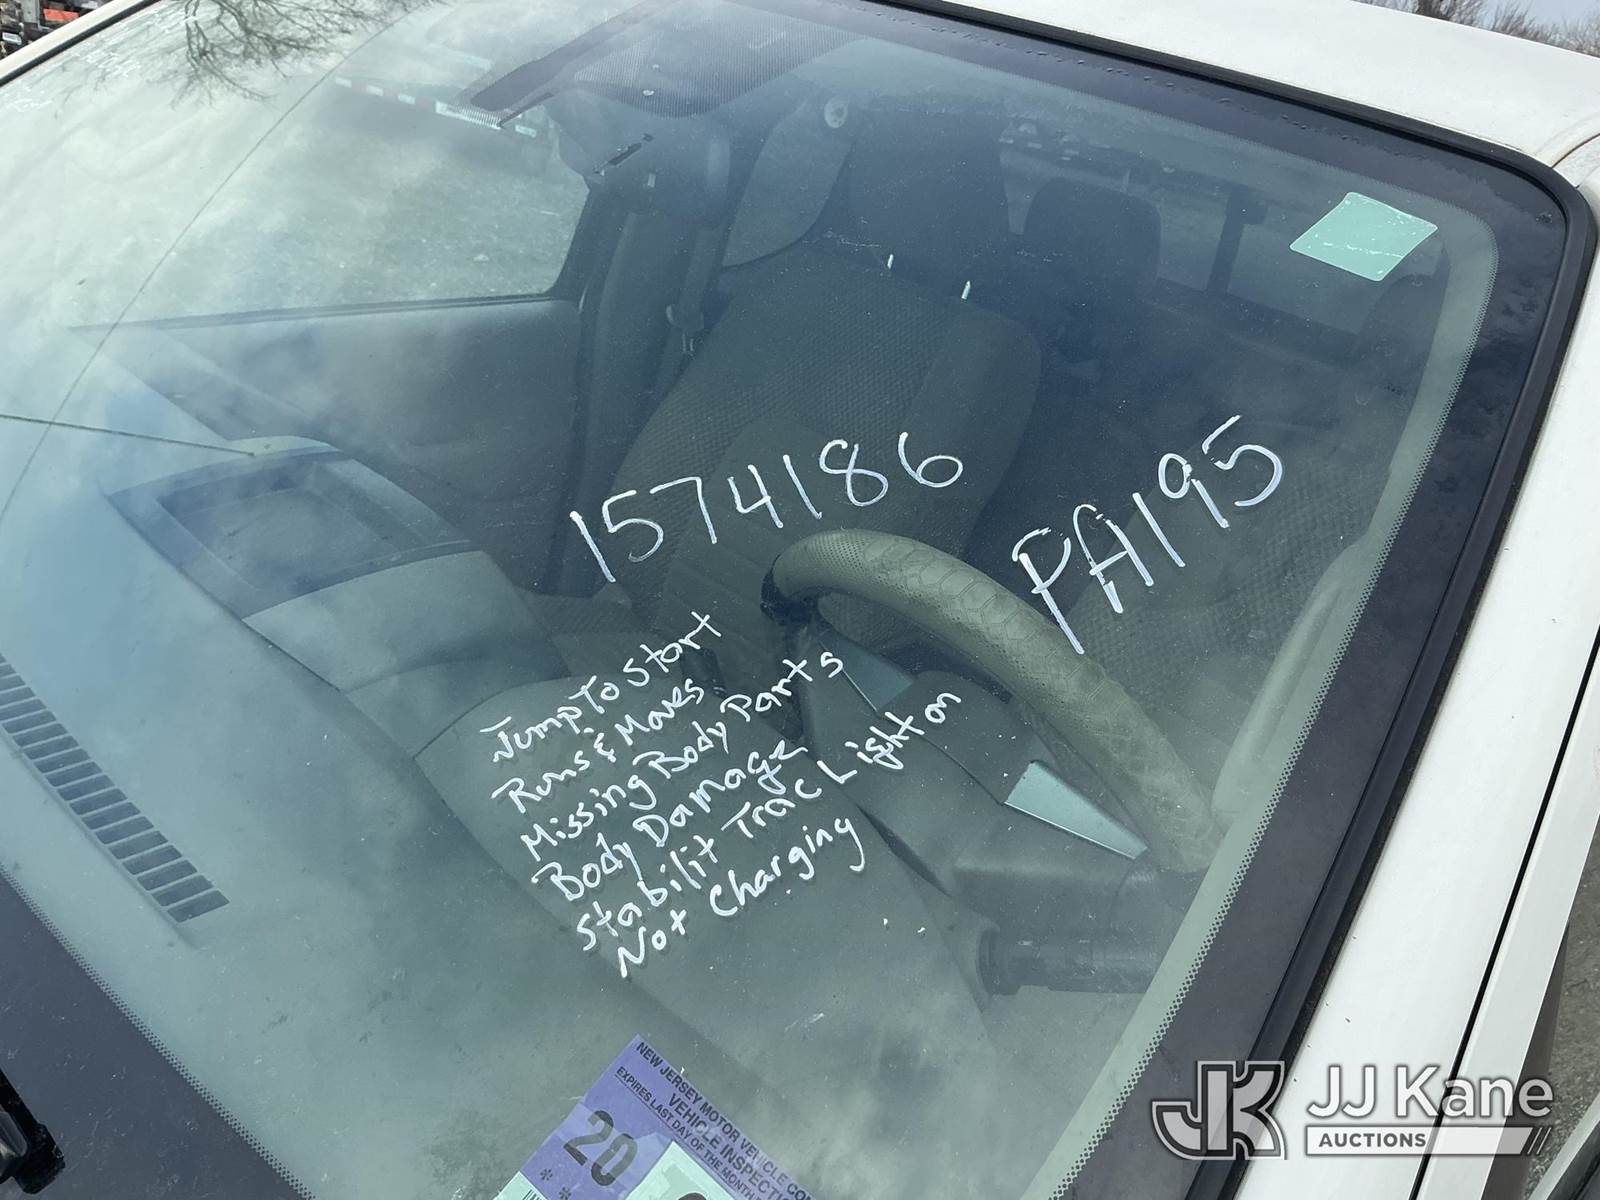 1574186
PA195
Jump To Start
Runs & Moves
Missing Body Parts
Body Damage
Stabilit Trac Light on
Not Charging
NEW JERSEY MOTOR VEHICLE CO
VEHICLE INSPECTI
EXPIRES LAST DAY OF THE MONTH
20
JJ Kane
AUCTIONS